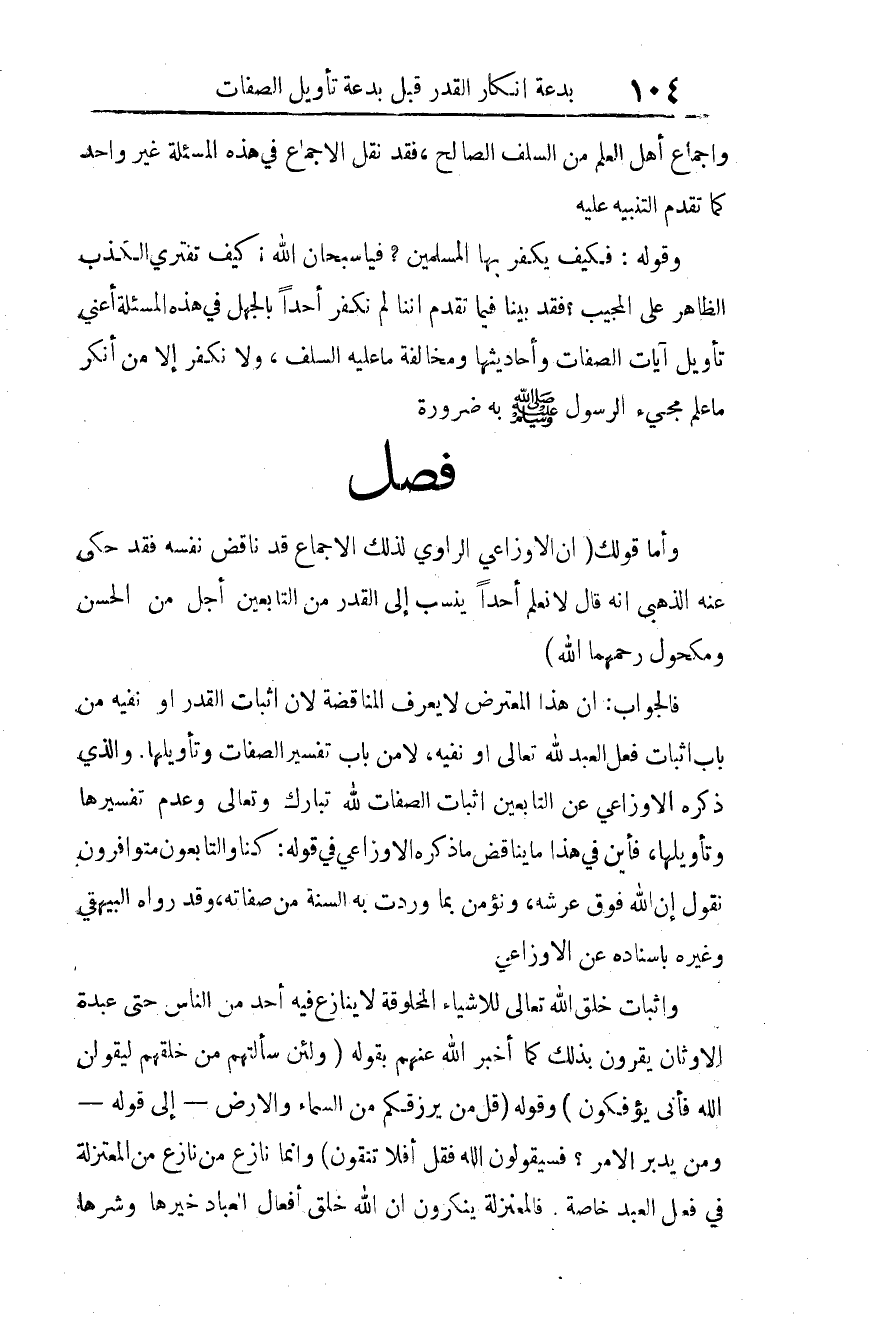 ١٠٤ بدعة انكار القدر قبل بدعة تأويل الصفات
واجماع أهل العلم من السلف الصالح ،فقد نقل الاجماع في هذه المسئلة غير واحد
كما تقدم التنبيه عليه
وقوله : فكيف يكفر بها المسلمين ? فياسبحان الله ! كيف تفتري الكذب
الظاهر على المجيب ؟ فقد بينا فيما تقدم اننا لم نكفر أحداً بالجهل في هذه المسئلة أعني
تأويل آيات الصفات وأحاديثها ومخالفة ماعليه السلف ، ولا نكفر إلا من أنكر
ماعلم مجيء الرسول ﷺ به ضرورة
فصل
وأما قولك( ان الاوزاعي الراوي لذلك الاجماع قد ناقض نفسه فقد حكى
عنه الذهبي انه قال لانعلم أحداً ينسب إلى القدر من التابعين أجل من الحسن
ومكحول رحمهما الله )
فالجواب: ان هذا المعترض لايعرف المناقضة لان اثبات القدر او نفيه من
باب اثبات فعل العبد لله تعالى او نفيه، لامن باب تفسير الصفات وتأويلها. والذي
ذكره الاوزاعي عن التابعين اثبات الصفات لله تبارك وتعالى وعدم تفسيرها
وتأويلها، فأين في هذا مايناقض ماذكره الاوزاعي في قوله: كنا والتابعون متوافرون
نقول إن الله فوق عرشه، ونؤمن بما وردت به السنة من صفاته،وقد رواه البيهقي
وغيره باسناده عن الاوزاعي
واثبات خلق الله تعالى للاشياء المخلوقة لاينازع فيه أحد من الناس حتى عبدة
الاوثان يقرون بذلك كما أخبر الله عنهم بقوله ( ولئن سألتهم من خلقهم ليقولن
الله فأنى يؤفكون ) وقوله (قل من يرزقكم من السماء والارض — إلى قوله —
ومن يدبر الامر ؟ فسيقولون الله فقل أفلا تتقون) وانما نازع من نازع من المعتزلة
في فعل العبد خاصة . فالمعتزلة ينكرون ان الله خلق أفعال العباد خيرها وشرها